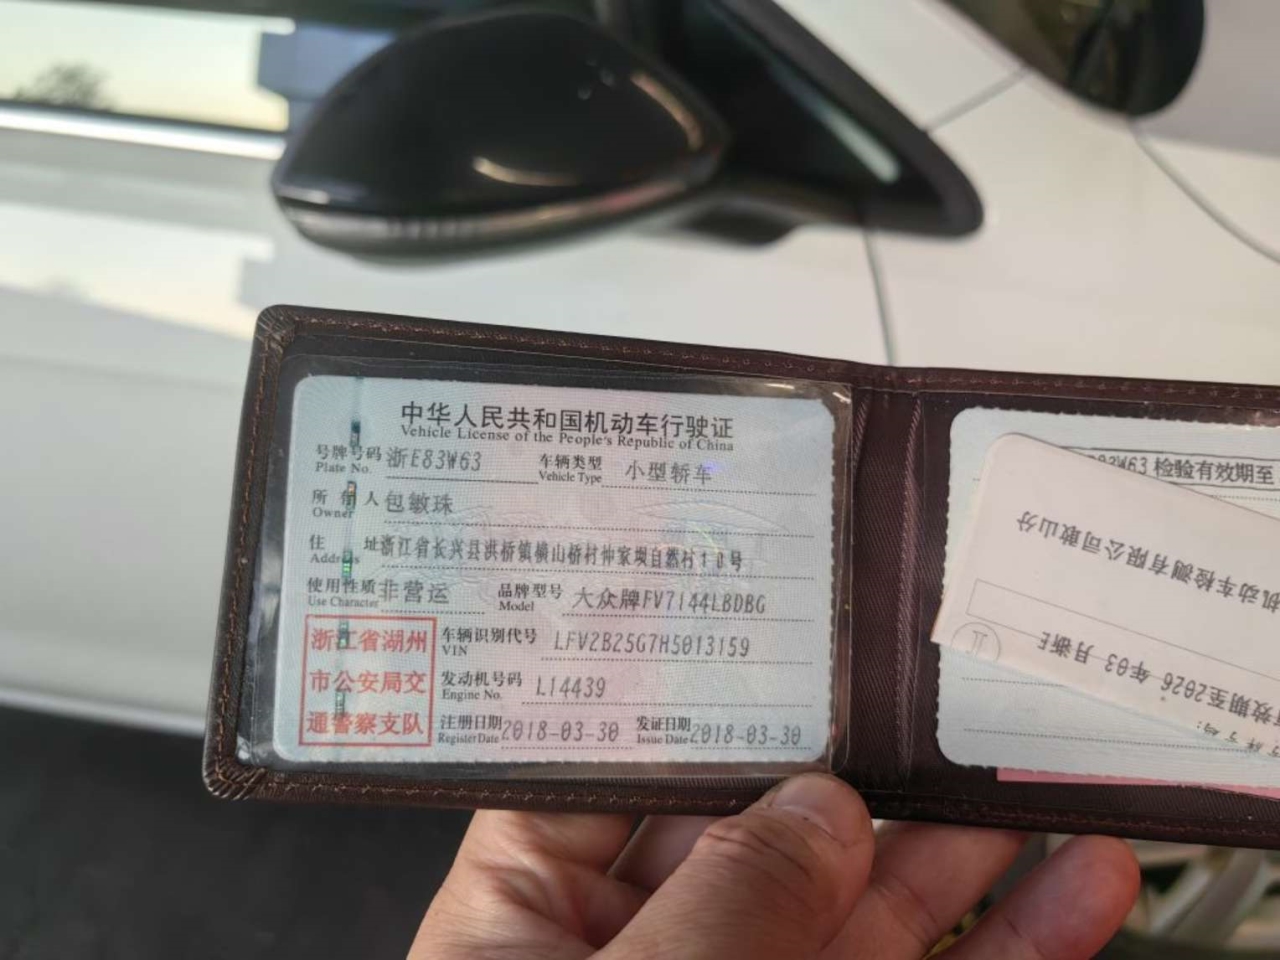 中华人民共和国机动车行驶证
Vehicle License of the People's Republic of China
号牌号码 浙E83W63 车辆类型 小型轿车
Plate No. Vehicle Type
所有人 包敏珠
Owner
住址 浙江省长兴县洪桥镇横山桥村仲家坝自然村10号
Address
使用性质 非营运 品牌型号 大众牌FV7144LBDBG
Use Character Model
浙江省湖州
市公安局交
通警察支队
车辆识别代号 LFV2B25G7H5013159
VIN
发动机号码 L14439
Engine No.
注册日期 2018-03-30 发证日期 2018-03-30
Register Date Issue Date
83W63 检验有效期至
机动车检测有限公司敢山分
效期至2026 年03 月浙E